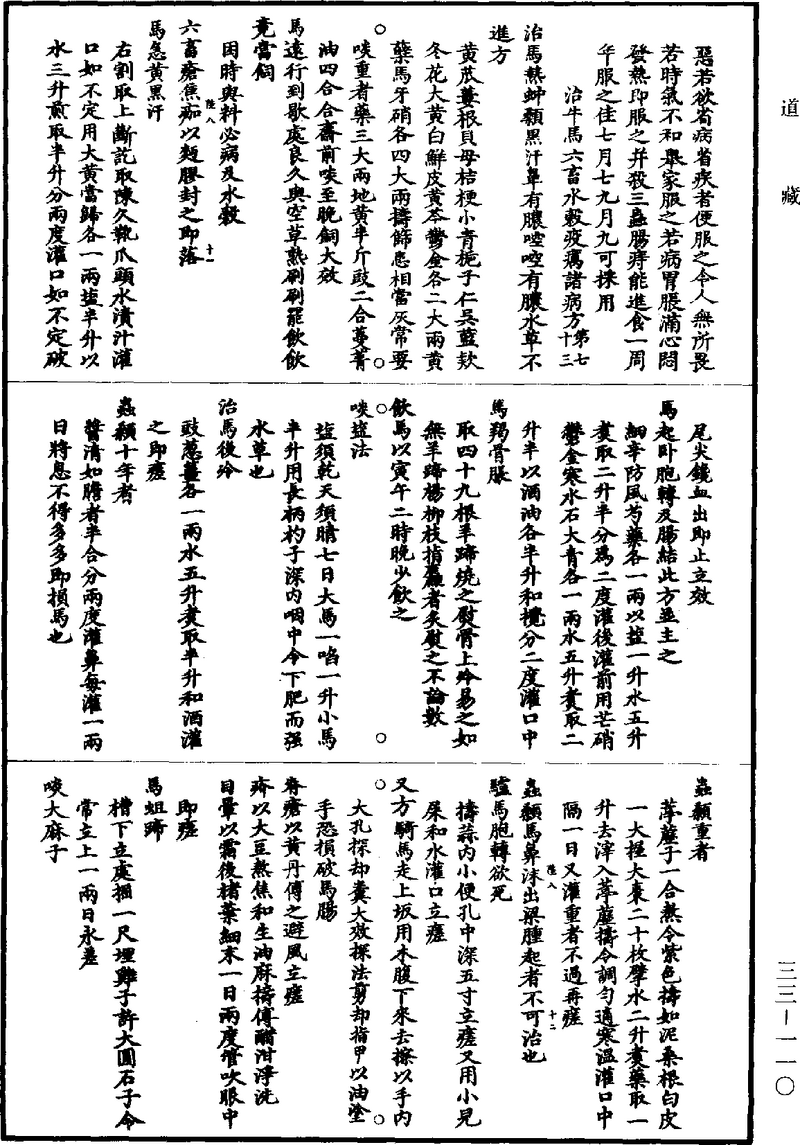 道藏
惡若欲省病省疾者便服之令人無所畏
若時氣不和舉家服之若病胃脹滿心悶
發熱即服之并殺三蟲腸痔能進食一周
年服之佳七月七九月九可採用
治牛馬六畜水穀疫癘諸病方第七十三
治馬熱蚛顙黑汗鼻有膿啌啌有膿水草不
進方
黄瓜蔞根貝母桔梗小青梔子仁吳藍欵
冬花大黄白鮮皮黄芩鬱金各二大兩黄
蘗馬牙硝各四大兩擣篩患相當灰常要
啖重者藥三大兩地黄半斤豉二合蔓菁
油四合合齋前啖至晚飼大效
馬遠行到歇處良久與空草熟刷刷罷飲飲
竟當飼
因時與料必病及水穀
六畜瘡焦痂以麫膠封之即落
馬急黄黑汗
右割取上斷訖取陳久靴爪頭水漬汁灌
口如不定用大黄當歸各一兩塩半升以
水三升煎取半升分兩度灌口如不定破
陸八
十一
尾尖鑱血出即止立效
馬起卧胞轉及腸結此方並主之
細辛防風芍藥各一兩以塩一升水五升
煮取二升半分爲二度灌後灌前用芒硝
鬱金寒水石大青各一兩水五升煮取二
升半以酒油各半升和攪分二度灌口中
馬羯骨脹
取四十九根羊蹄燒之熨骨上冷易之如
無羊蹄楊柳枝指麤者炙熨之不論數
飲馬以寅午二時晚少飲之
啖塩法
塩須乾天須晴七日大馬一啗一升小馬
半升用長柄杓子深内咽中令下肥而强
水草也
治馬後冷
豉葱薑各一兩水五升煮取半升和酒灌
之即瘥
蟲顙十年者
醬清如膽者半合分兩度灌鼻每灌一兩
日將息不得多多即損馬也
蟲顙重者
葶藶子一合熬令紫色擣如泥桑根白皮
一大握大棗二十枚擘水二升煮藥取一
升去滓入葶藶擣令調匀適寒温灌口中
隔一日又灌重者不過再瘥
蟲顙馬鼻沫出梁腫起者不可治也
驢馬胞轉欲死
擣蒜内小便孔中深五寸立瘥又用小兒
屎和水灌口立瘥
又方騎馬走上坂用木腹下來去擦以手内
大孔探却糞大效探法剪却指甲以油塗
手恐損破馬腸
脊瘡以黄丹傅之避風立瘥
疥以大豆熬焦和生油麻擣傅醋泔淨洗
目暈以霜後楮葉細末一日兩度管吹眼中
即瘥
馬蛆蹄
槽下立處掘一尺埋雞子許大圓石子令
常立上一兩日永差
啖大麻子
陸八
十二
三三－一一〇